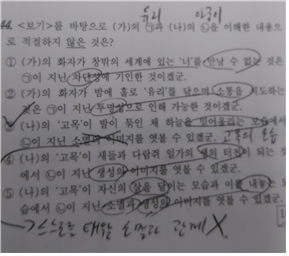 유리 단풍이
44. <보기>를 바탕으로 (가)의 ㉠과 (나)의 ㉡을 이해한 내용으
로 적절하지 않은 것은?
① (가)의 화자가 창밖의 세계에 있는 '너'를 만날 수 없는 것은
㉠이 지닌 차단성에 기인한 것이겠군.
② (가)의 화자가 밤에 홀로 '유리'를 닦으며 소통을 시도하는
것은 ㉠이 지닌 투명성으로 인해 가능한 것이겠군.
(나)의 '고목'이 발이 묶인 채 하늘을 떨어올리는 모습에서
㉡이 지닌 소멸의 이미지를 엿볼 수 있겠군. 고목의 모습
④ (나)의 '고목'이 새들과 다람쥐 일가의 삶의 터전이 되는 것
에서 ㉡이 지닌 생성의 이미지를 엿볼 수 있겠군.
⑤ (나)의 '고목'이 자신의 살을 덜어는 모습과 이를 내놓는 모
습에서 ㉡이 지닌 소멸과 생성의 이미지를 엿볼 수 있겠군.
관계 X